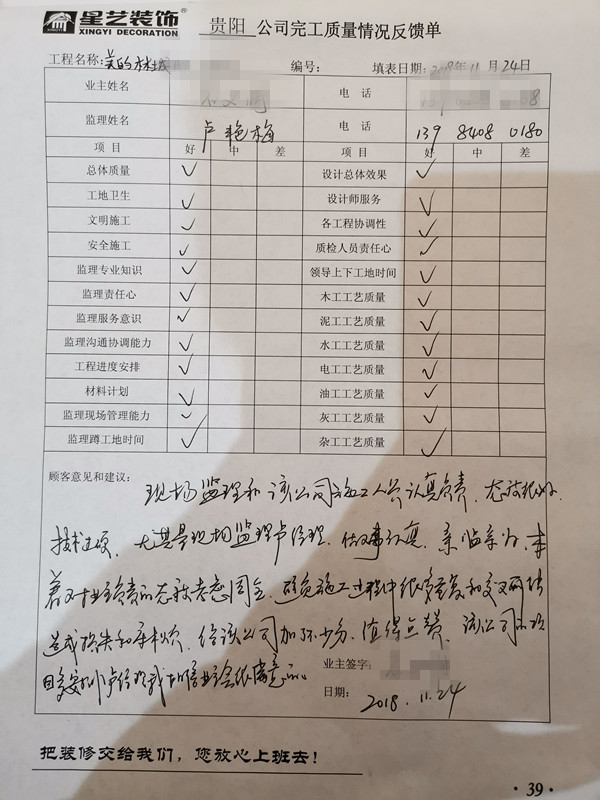 星艺装饰 贵阳 公司完工质量情况反馈单
XINGYI DECORATION
工程名称: 美的林城 编号: 填表日期: 2018年11月24日
业主姓名 电话
监理姓名 卢艳梅 电话 139 8408 0180
项目 好 中 差 项目 好 中 差
总体质量 ✓ 设计总体效果 ✓
工地卫生 ✓ 设计师服务 ✓
文明施工 ✓ 各工程协调性 ✓
安全施工 ✓ 质检人员责任心 ✓
监理专业知识 ✓ 领导上下工地时间 ✓
监理责任心 ✓ 木工工艺质量 ✓
监理服务意识 ✓ 泥工工艺质量 ✓
监理沟通协调能力 ✓ 水工工艺质量 ✓
工程进度安排 ✓ 电工工艺质量 ✓
材料计划 ✓ 油工工艺质量 ✓
监理现场管理能力 ✓ 灰工工艺质量 ✓
监理蹲工地时间 ✓ 杂工工艺质量 ✓
顾客意见和建议: 现场监理和该公司施工人员认真负责、态度很好、
技术过硬、尤其是现场监理卢经理、做事认真、亲临亲为、本
着对业主负责的态度考虑周全、避免施工过程中很多重复和交叉
造成损失和麻烦、给该公司加不少分、值得点赞、该公司
目交给卢经理我相信业主会很满意的。
业主签字:
日期: 2018.11.24
把装修交给我们，您放心上班去！
·39·